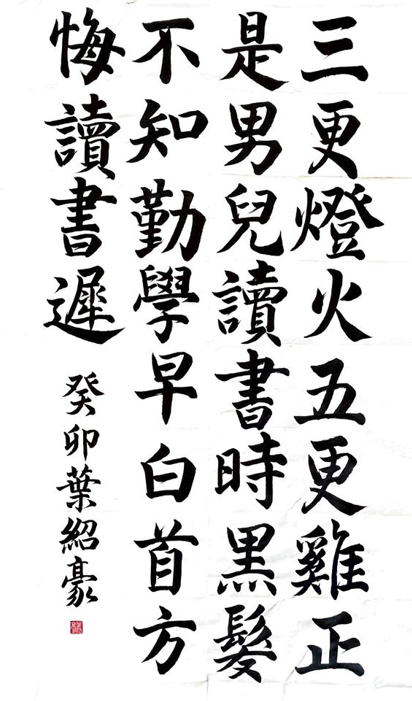 三更燈火五更雞正
是男兒讀書時黑髮
不知勤學早白首方
悔讀書遲
癸卯葉紹豪